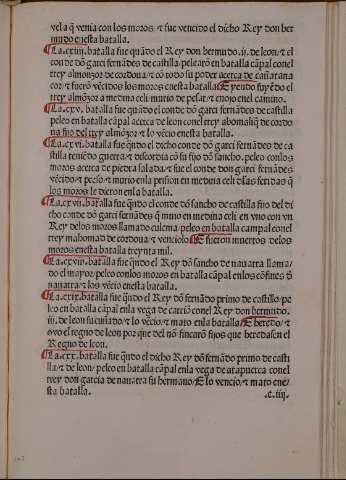 vela q̃ venia con los moros / ⁊ fue vencido el dicho Rey don ber
mudo enesta batalla.
¶La .cxiiij. batalla fue quãdo el Rey don bermudo .ij. de leon / ⁊ el
con de dõ garci fernãdes de castilla . pelearõ en batalla cãpal conel
rrey almonzor de cordoua / ⁊ cõ todo su poder acerca de cañatana
çor / ⁊ fuerõ vẽcidos los moros enesta batalla. ¶E yendo fuyẽdo el
rrey almõzor a medina celi murio de pesar / ⁊ enojo enel camino.
¶La .cxv. batalla fue quãdo el conde dõ garci fernãdes de castilla
peleo en batalla cãpal acerca de leon conel rrey abomaliq̃ de cordo
ua fijo del rrey almõzor / ⁊ lo vẽcio enesta batalla.
¶La .cxvi. batalla fue q̃ndo el dicho conde dõ garci fernãdes de ca
stilla teniẽdo guerra / ⁊ descordia cõ su fijo dõ sancho. peleo conlos
moros acerca de piedra salada / ⁊ fue el conde don garci fernãdes
vẽcido / ⁊ preso / ⁊ murio enla prision en medina celi d̃las feridas q̃
los moros le dieron enla batalla.
¶La .cxvij. batalla fue q̃ndo el conde dõ sancho de castilla fijo del di
cho conde dõ garci fernãdes q̃ murio en medina celi en vno con vn
Rey delos moros llamado culema / peleo en batalla campal conel
rrey mahomad de cordoua / ⁊ venciolo. ¶E fueron muertos delos
moros enesta batalla treynta mil.
¶La .cxviij. batalla fue q̃ndo el Rey dõ sancho de nauarra llama /
do el mayor / peleo conlos moros en batalla cãpal enlos cõfines d̃
nauarra / ⁊ los vẽcio enesta batalla.
¶La .cxix. batalla fue q̃ndo el Rey dõ fernãdo primo de castillo / pe
leo en batalla cãpal enla vega de carriõ conel Rey don bermudo.
iij. de leon su cuñado / ⁊ lo vẽcio / ⁊ mato enla batalla. ¶E heredo / ⁊
ovo el regno de leon por que del nõ fincarõ fijos que heredasen el
Regno de leon.
¶La .cxx. batalla fue q̃ndo el dicho Rey dõ fernãdo primo de casti
lla / ⁊ de leon / peleo en batalla cãpal enla vega de atapuerca conel
rrey don garcia de nauarra su hermano / E lo vencio / ⁊ mato ene /
sta batalla.
.c. iij.